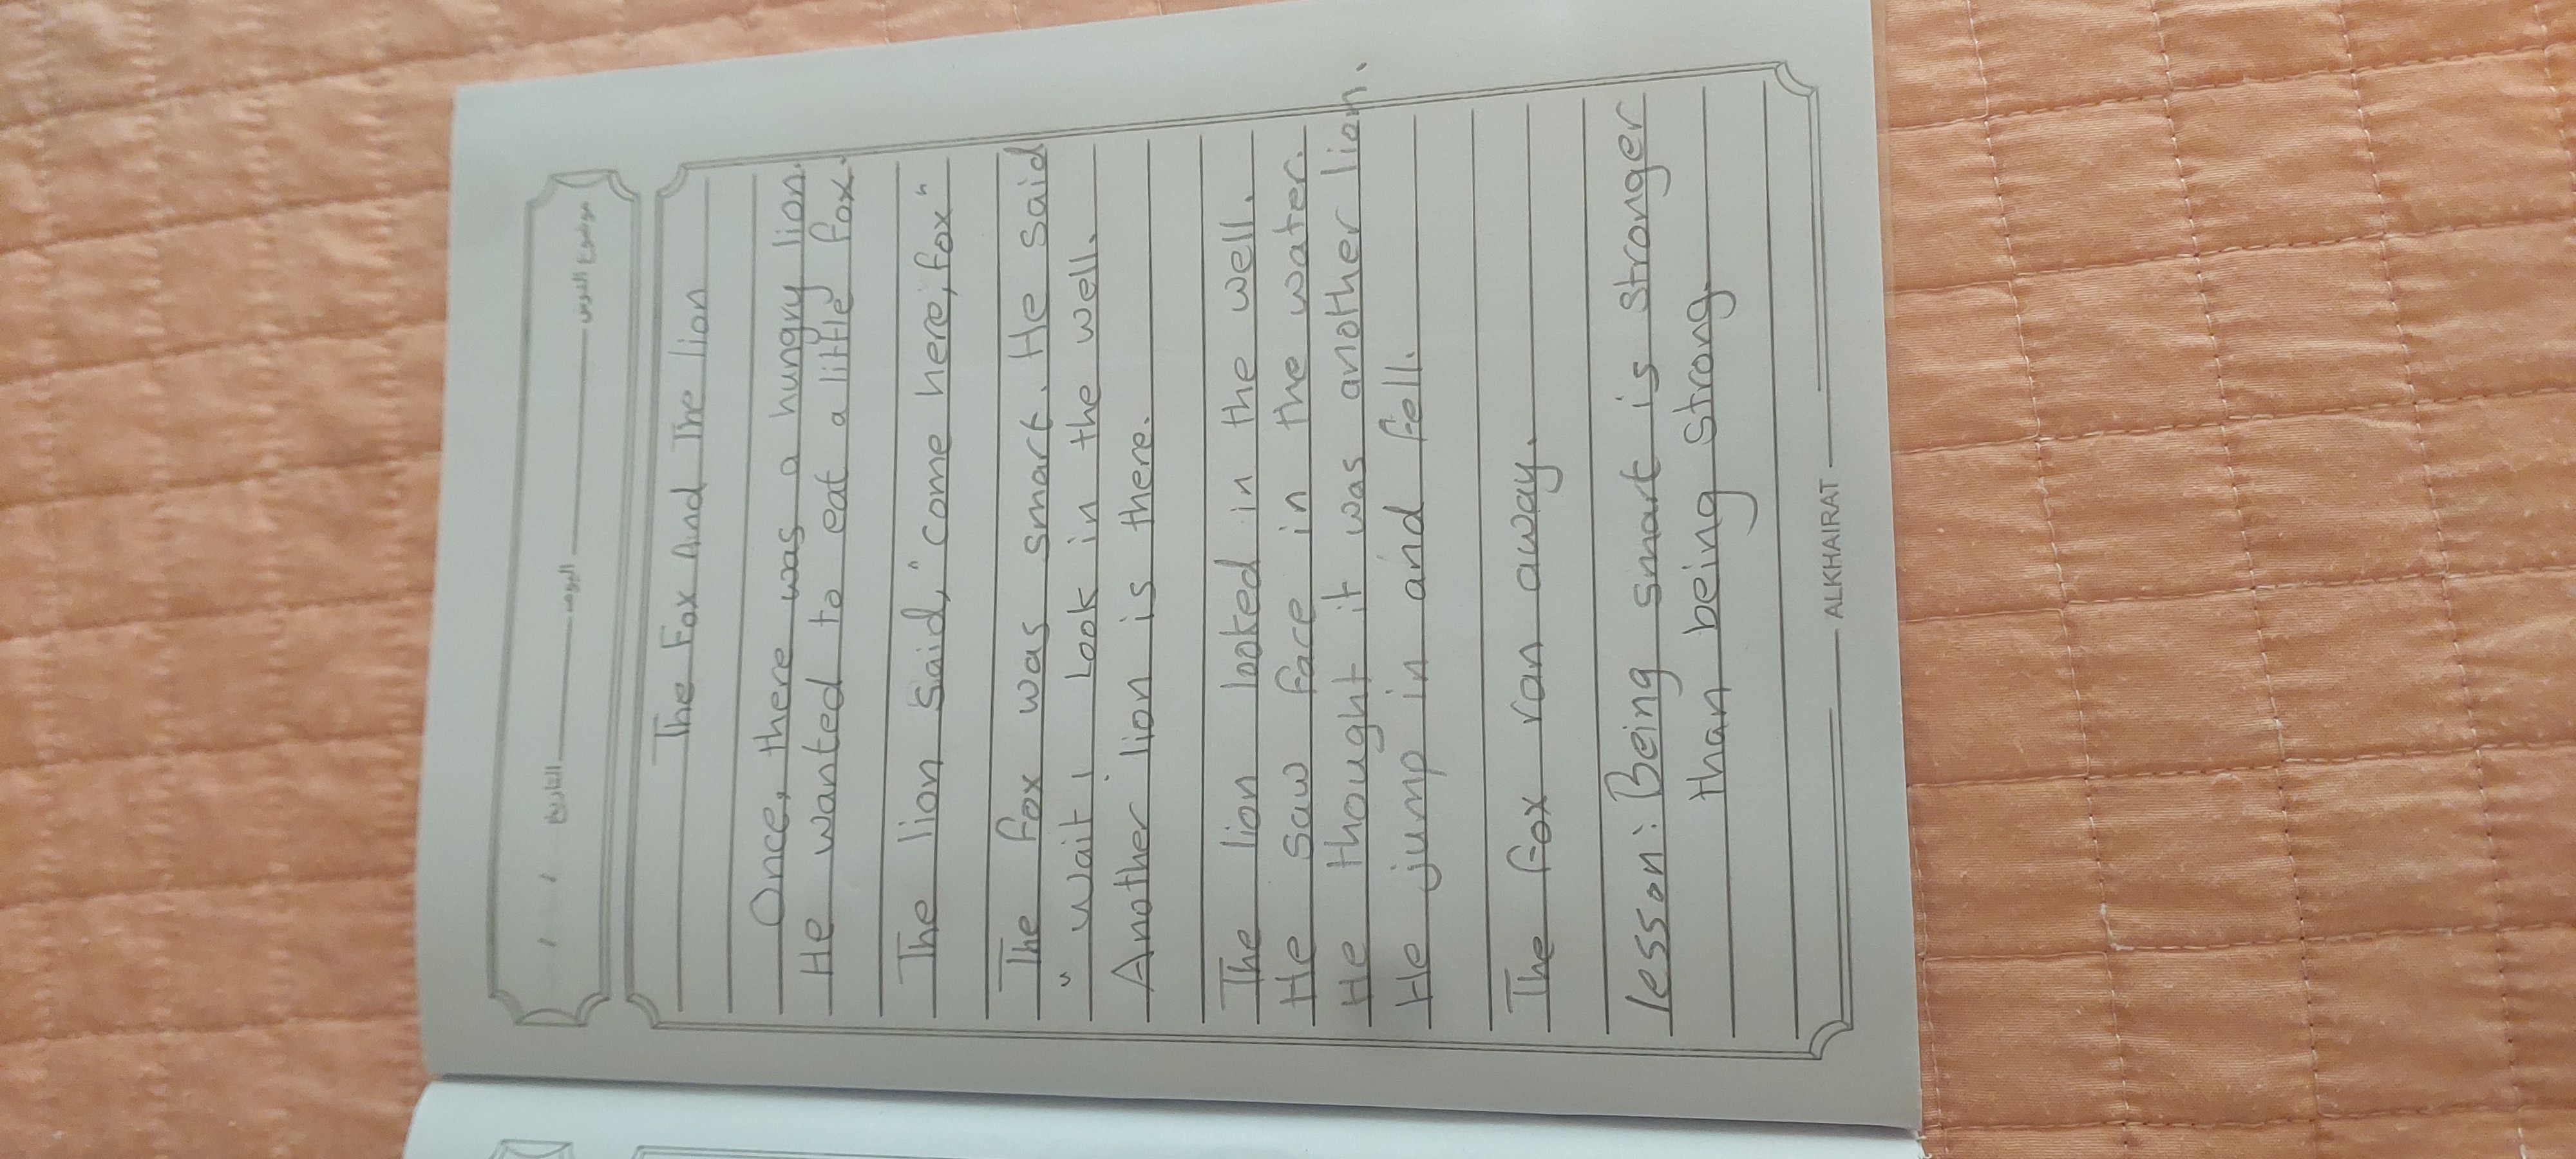 موضوع الدرس
اليوم
التاريخ / /
The Fox And The lion
Once, there was a hungry lion.
He wanted to eat a little fox.
The lion said, "come here, fox"
The fox was smart. He said
"wait! Look in the well.
Another lion is there.
The lion looked in the well.
He saw face in the water.
He thought it was another lion.
He jump in and fell.
The fox ran away.
lesson: Being smart is stronger
than being strong.
ALKHAIRAT